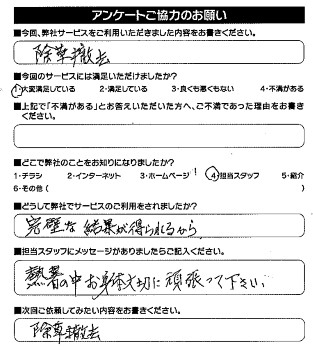 アンケートご協力のお願い
■今回、弊社サービスをご利用いただきました内容をお書きください。
除草撤去
■今回のサービスには満足いただけましたか?
1・大変満足している 2・満足している 3・良くも悪くもない 4・不満がある
■上記で「不満がある」とお答えいただいた方へ、ご不満であった理由をお書き
ください。
■どこで弊社のことをお知りになりましたか?
1・チラシ 2・インターネット 3・ホームページ 4・担当スタッフ 5・紹介
6・その他( )
■どうして弊社でサービスのご利用をされましたか?
完璧な結果が得られるから
■担当スタッフにメッセージがありましたらご記入ください。
熱暑の中お身体大切に頑張って下さい
■次回ご依頼してみたい内容をお書きください。
除草撤去